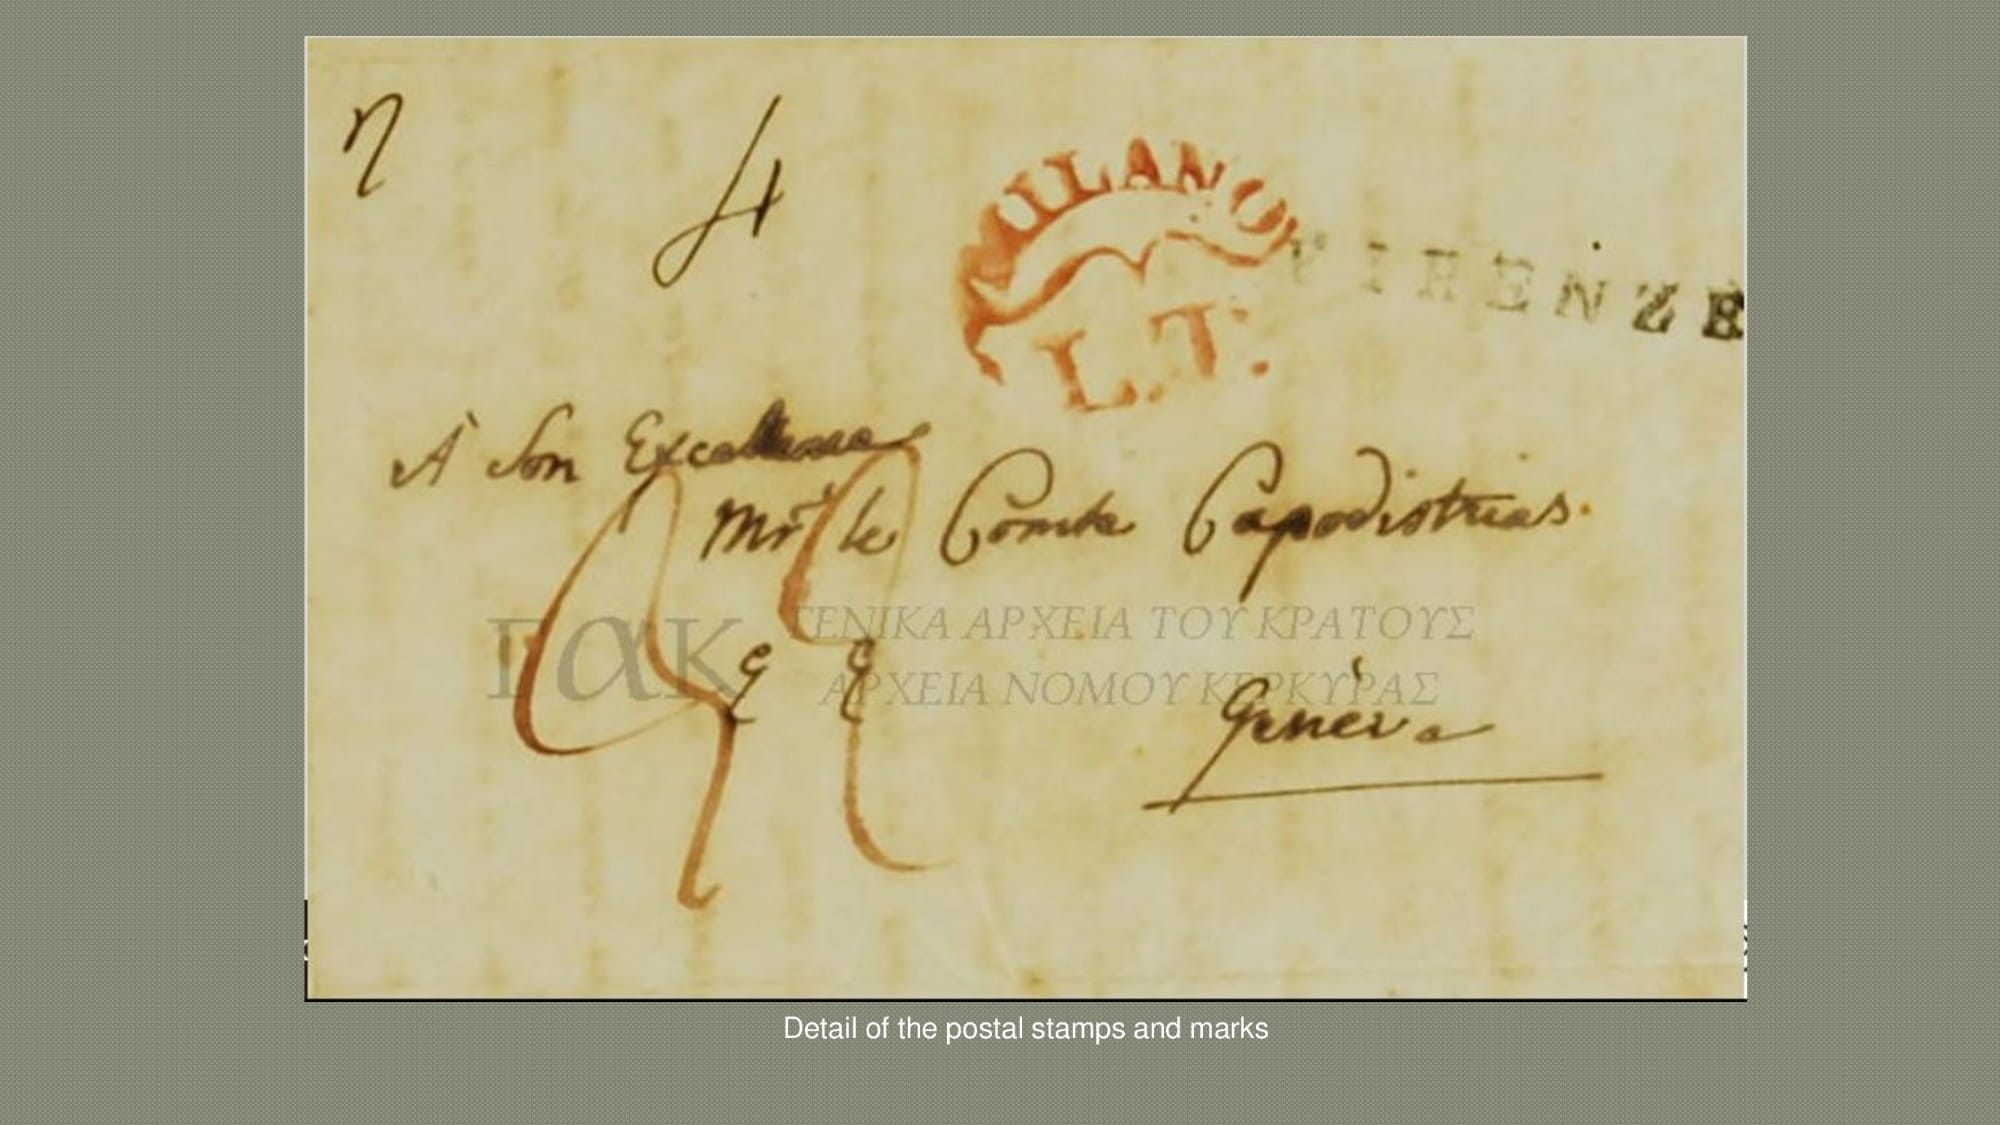 η
4
MILANO
L.T.
FIRENZE
À Son Excellence
Mr. le Comte Capodistrias.
ΓαΚ ΓΕΝΙΚΑ ΑΡΧΕΙΑ ΤΟΥ ΚΡΑΤΟΥΣ
ΑΡΧΕΙΑ ΝΟΜΟΥ ΚΕΡΚΥΡΑΣ
Genève
Detail of the postal stamps and marks